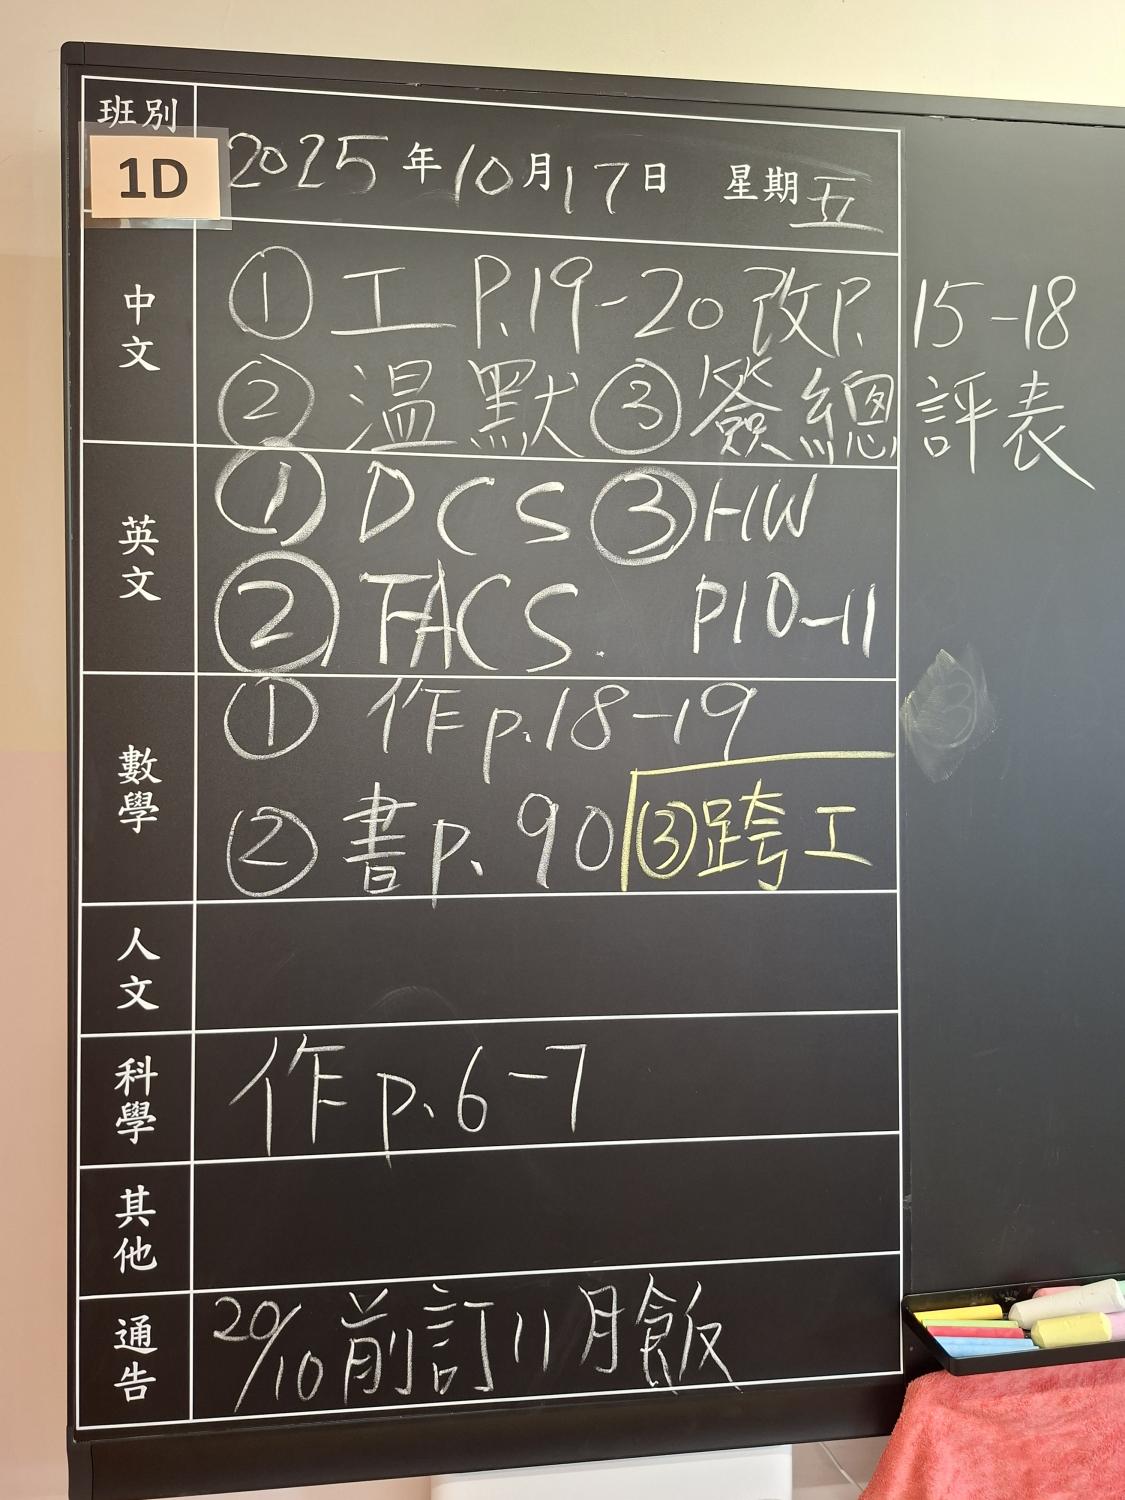 班別
1D
2025年10月17日 星期五
中文
① 工 P.19-20 改P. 15-18
② 温默 ③ 簽總評表
英文
① DCS ③ HW
② TACS. P10-11
數學
① 作p.18-19
② 書p. 90 ③跨工
人文
科學
作p.6-7
其他
通告
20/10前訂11月飯